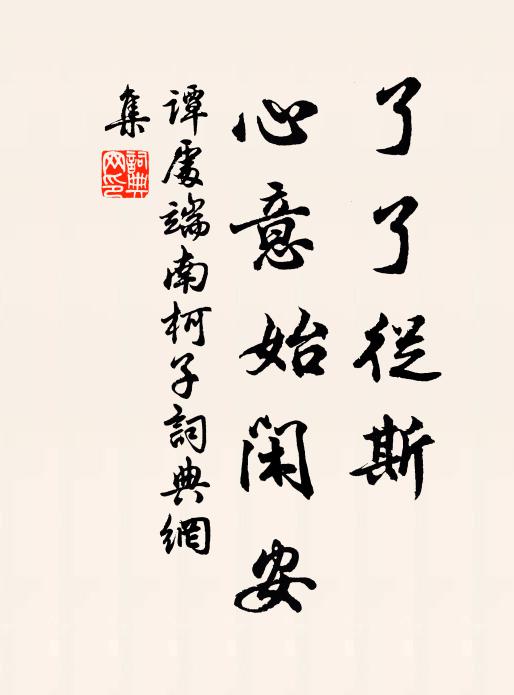 了了從斯
心意始闲安
譚處端南柯子詞典網
集
詞典
网印